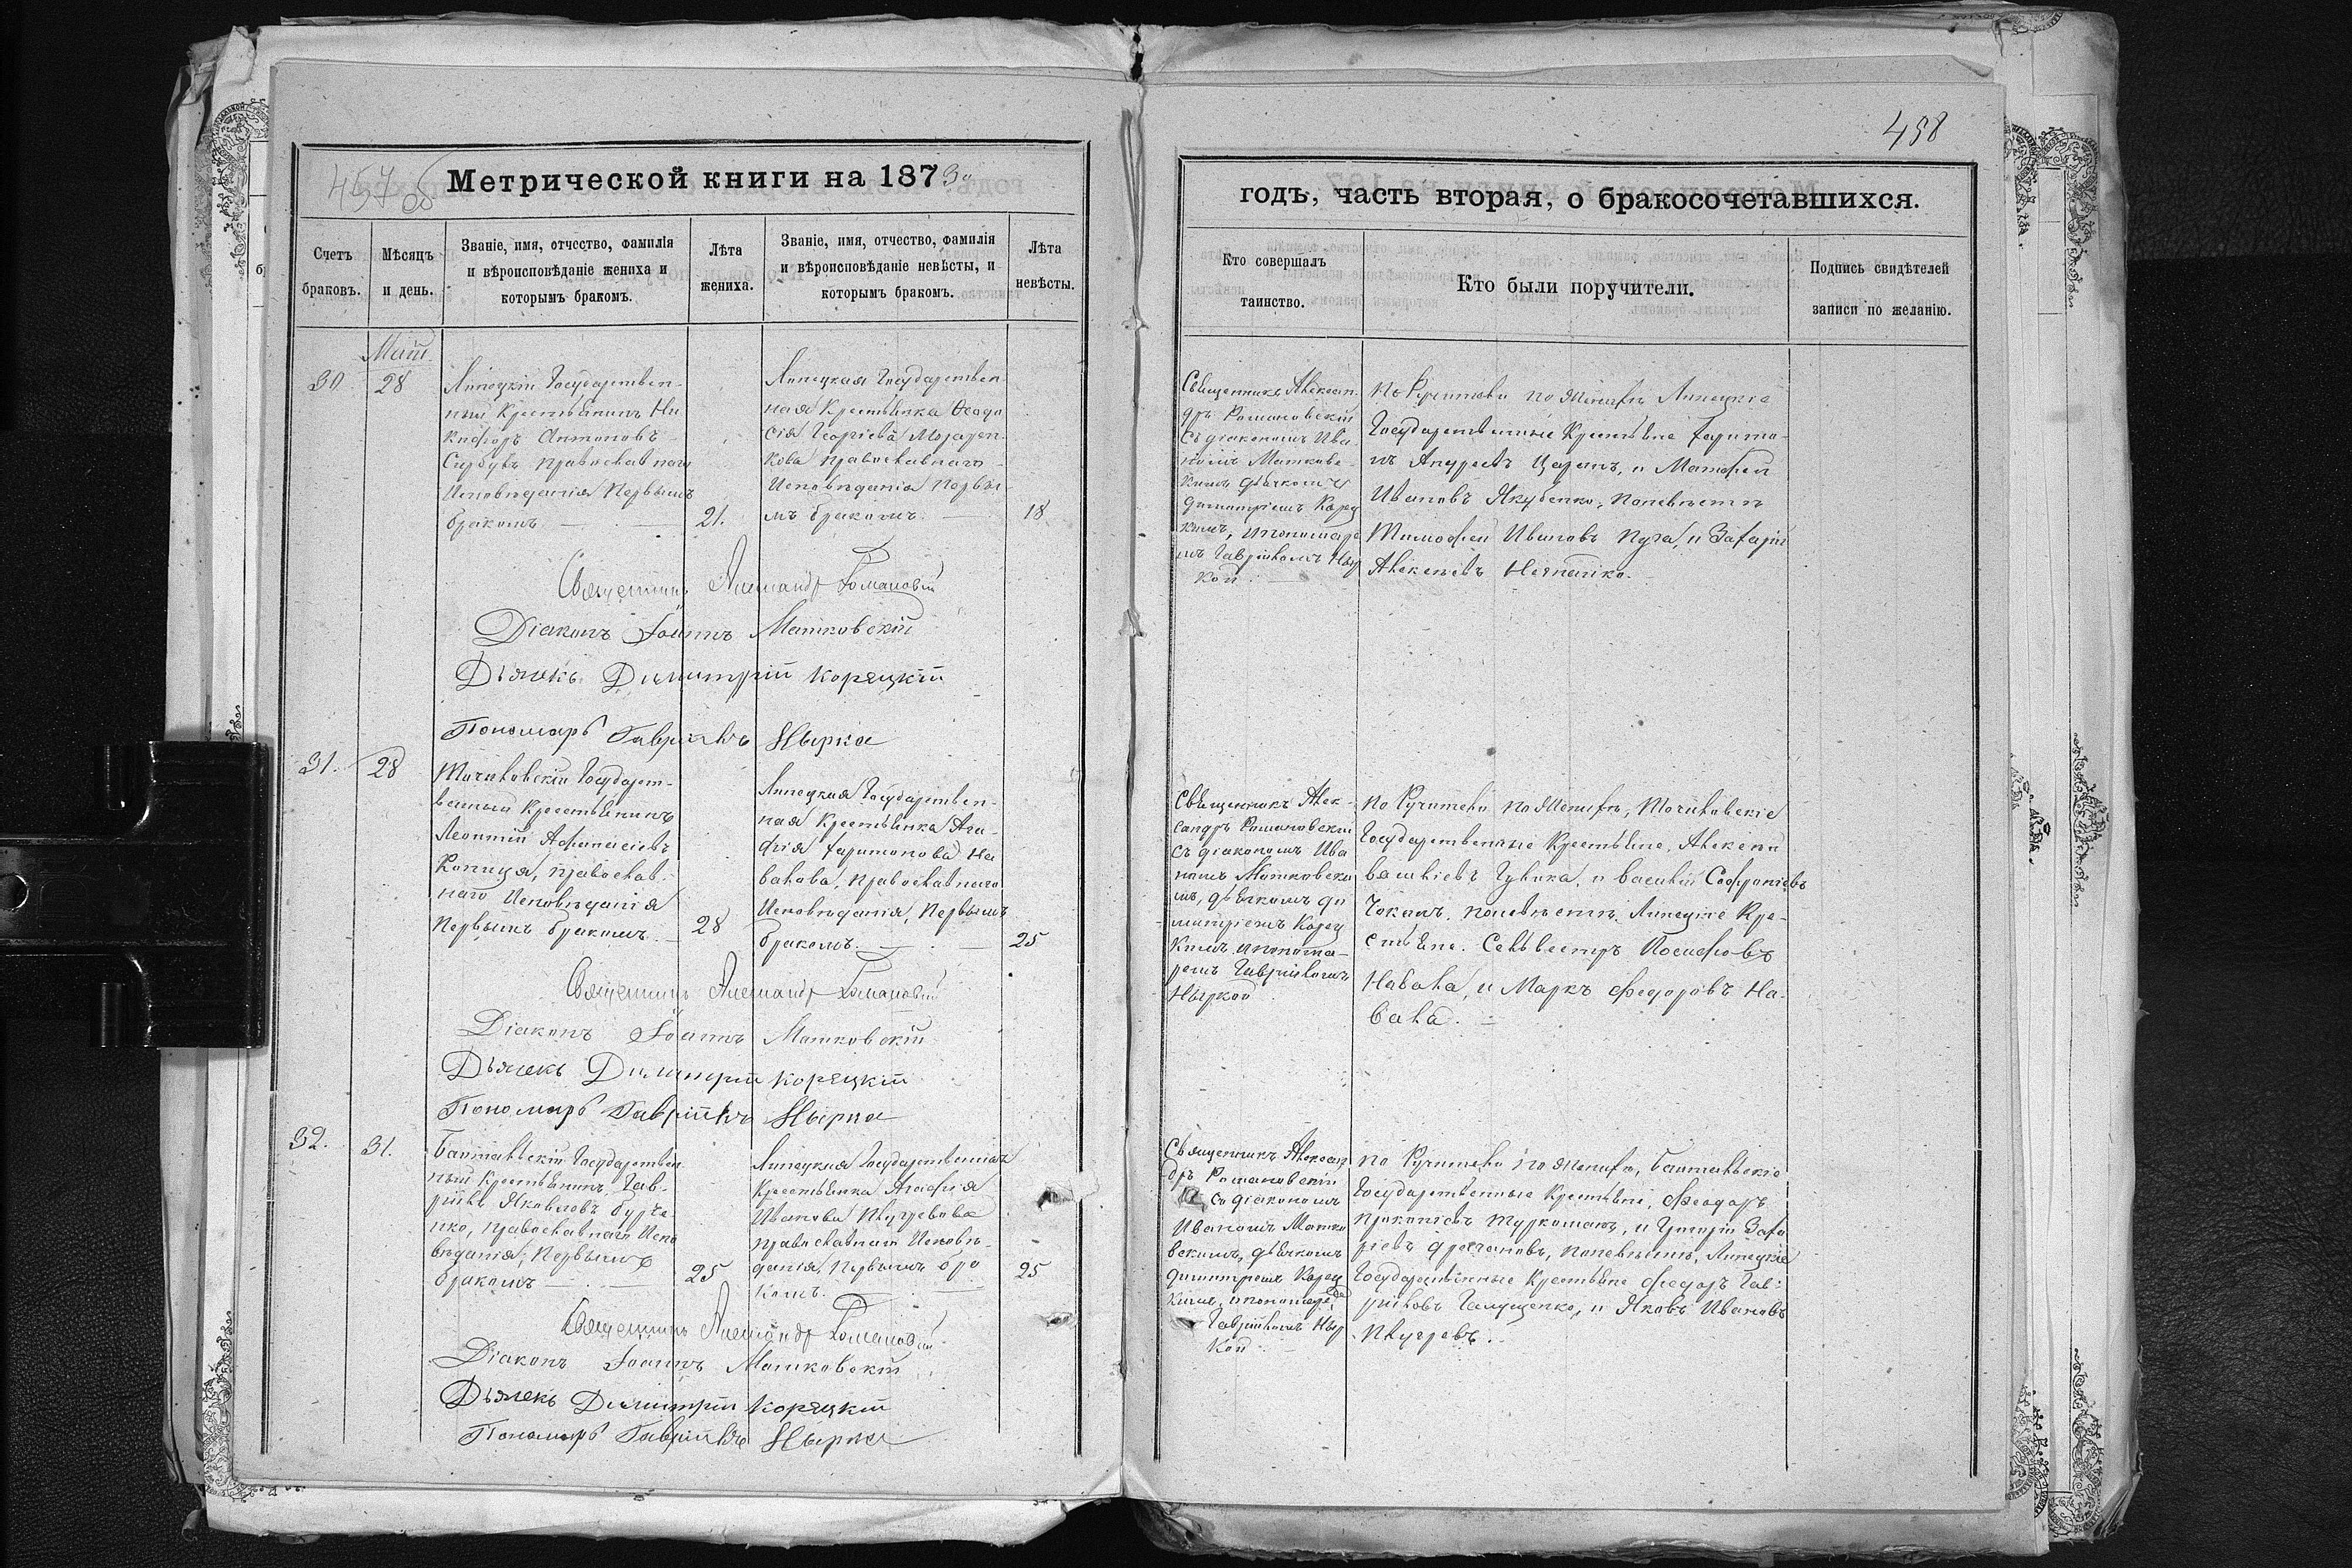 457 об
Метрической книги на 1873
Счетъ браковъ.
Мѣсяцъ и день.
Званіе, имя, отчество, фамилія и вѣроисповѣданіе жениха и которымъ бракомъ.
Лѣта жениха.
Званіе, имя, отчество, фамилія и вѣроисповѣданіе невѣсты, и которымъ бракомъ.
Лѣта невѣсты.
Маій
30
28
Липецкій Государствен-
ный Крестьянинъ Ни
кифоръ Антоновъ
Сырбувъ православнаго
Исповѣданія Первымъ
бракомъ
21.
Липецкая Государствен-
ная Крестьянка Феодо
сія Георгіева Мозарен-
кова православнаго
Исповѣданія Первы-
мъ бракомъ.
18
Священникъ Александръ Романовскій
Діаконъ Іоаннъ Матковскій
Дьячекъ Димитрій Корецкій
Пономарь Гавріилъ Нырка
31.
28
Точиловскій Государст-
венный Крестьянинъ
Леонтій Афанасіевъ
Копица, православ-
наго Исповѣданія
Первымъ бракомъ.
28
Липецкая Государствен-
ная Крестьянка Ага-
фія Харитонова На
вакова, православнаго
Исповѣданія, Первымъ
бракомъ.
25
Священникъ Александръ Романовскій
Діаконъ Іоаннъ Матковскій
Дьячекъ Димитрій Корецкій
Пономарь Гавріилъ Нырка
32.
31.
Бантавскій Государствен
ный Крестьянинъ, Гав-
ріилъ Яковловъ Бурче
нко, православнаго Испо
вѣданія, Первымъ
бракомъ
25
Липецкая Государственная
Крестьянка Агафія
Иванова Плугрева
православнаго Исповѣ-
данія, Первымъ бра
комъ.
25
Священникъ Александръ Романовскій
Діаконъ Іоаннъ Матковскій
Дьячекъ Димитрій Корецкій
Пономарь Гавріилъ Нырка
458
годъ, часть вторая, о бракосочетавшихся.
Кто совершалъ таинство.
Кто были поручители.
Подпись свидѣтелей записи по желанію.
Священникъ Алексан-
дръ Романовскій
съ діакономъ Ива
номъ Матковс-
кимъ дьячкомъ
Димитріемъ Корец
кимъ, и пономаре
мъ Гавріиломъ Ныр
кой
По Ручители по женихѣ Липецкіе
Государственные Крестьяне Харито-
нъ Андреевъ Царанъ, и Матфей
Ивановъ Якубенко, по невѣстѣ
Тимофей Ивановъ Пуга, и Захарій
Алексѣевъ
Священникъ Алек-
сандръ Романовскій
съ діакономъ Ива
номъ Матковски
мъ, дьячкомъ Ди
митріемъ Корец
кимъ, и понома-
ремъ Гавріиломъ
Ныркой
По Ручители по женихѣ, Точиловскіе
Государственные Крестьяне, Алексѣй
Василіевъ Гулика, и Василій Софроніевъ
Чоканъ. по невѣстѣ. Липецкіе Кре-
стьяне. Сельвестръ Іосифовъ
Навака, и Маркъ Федоровъ На-
вака.
Священникъ Алексан
дръ Романовскій
съ діакономъ
Иваномъ Матко
вскимъ, дьячкомъ
Димитріемъ Корец
кимъ, и пономаре
Гавріиломъ Ныр
кой
По Ручители по женихѣ, Бантавскіе
Государственные Крестьяне, Феодоръ
Прокопіевъ Туркоманъ, и Григорій Заха
ріевъ по невѣстѣ, Липецкіе
Государственные Крестьяне Федоръ Гав-
ріиловъ Галущенко, и Яковъ Ивановъ
Плугревъ.